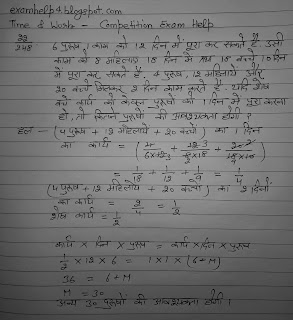 examhelp4.blogspot.com
Time & Work:- Competition Exam Help
22
248 6 पुरुष 1 काम को 12 दिन में पूरा कर सकते हैं. उसी
काम को 8 महिलाएं 18 दिन में तथा 18 बच्चे 10 दिन
में पूरा कर सकते हैं. 4 पुरुष, 12 महिलायें और
20 बच्चे मिलकर 2 दिन काम करते हैं. यदि शेष
बचे कार्य को केवल पुरुषों को 1 दिन में पूरा करना
हो, तो कितने पुरुषों की आवश्यकता होगी?
हल - (4 पुरुष + 12 महिलायें + 20 बच्चों) का 1 दिन
का कार्य =
= 1/18 + 1/12 + 1/9 = 1/4
(4 पुरुष + 12 महिलायें + 20 बच्चों) का 2 दिनों
का कार्य = 2/4 = 1/2
शेष कार्य = 1/2
कार्य × दिन × पुरुष = कार्य × दिन × पुरुष
1/2 × 12 × 6 = 1 × 1 × (6+M)
36 = 6 + M
M = 30
अन्य 30 पुरुषों की आवश्यकता होगी।